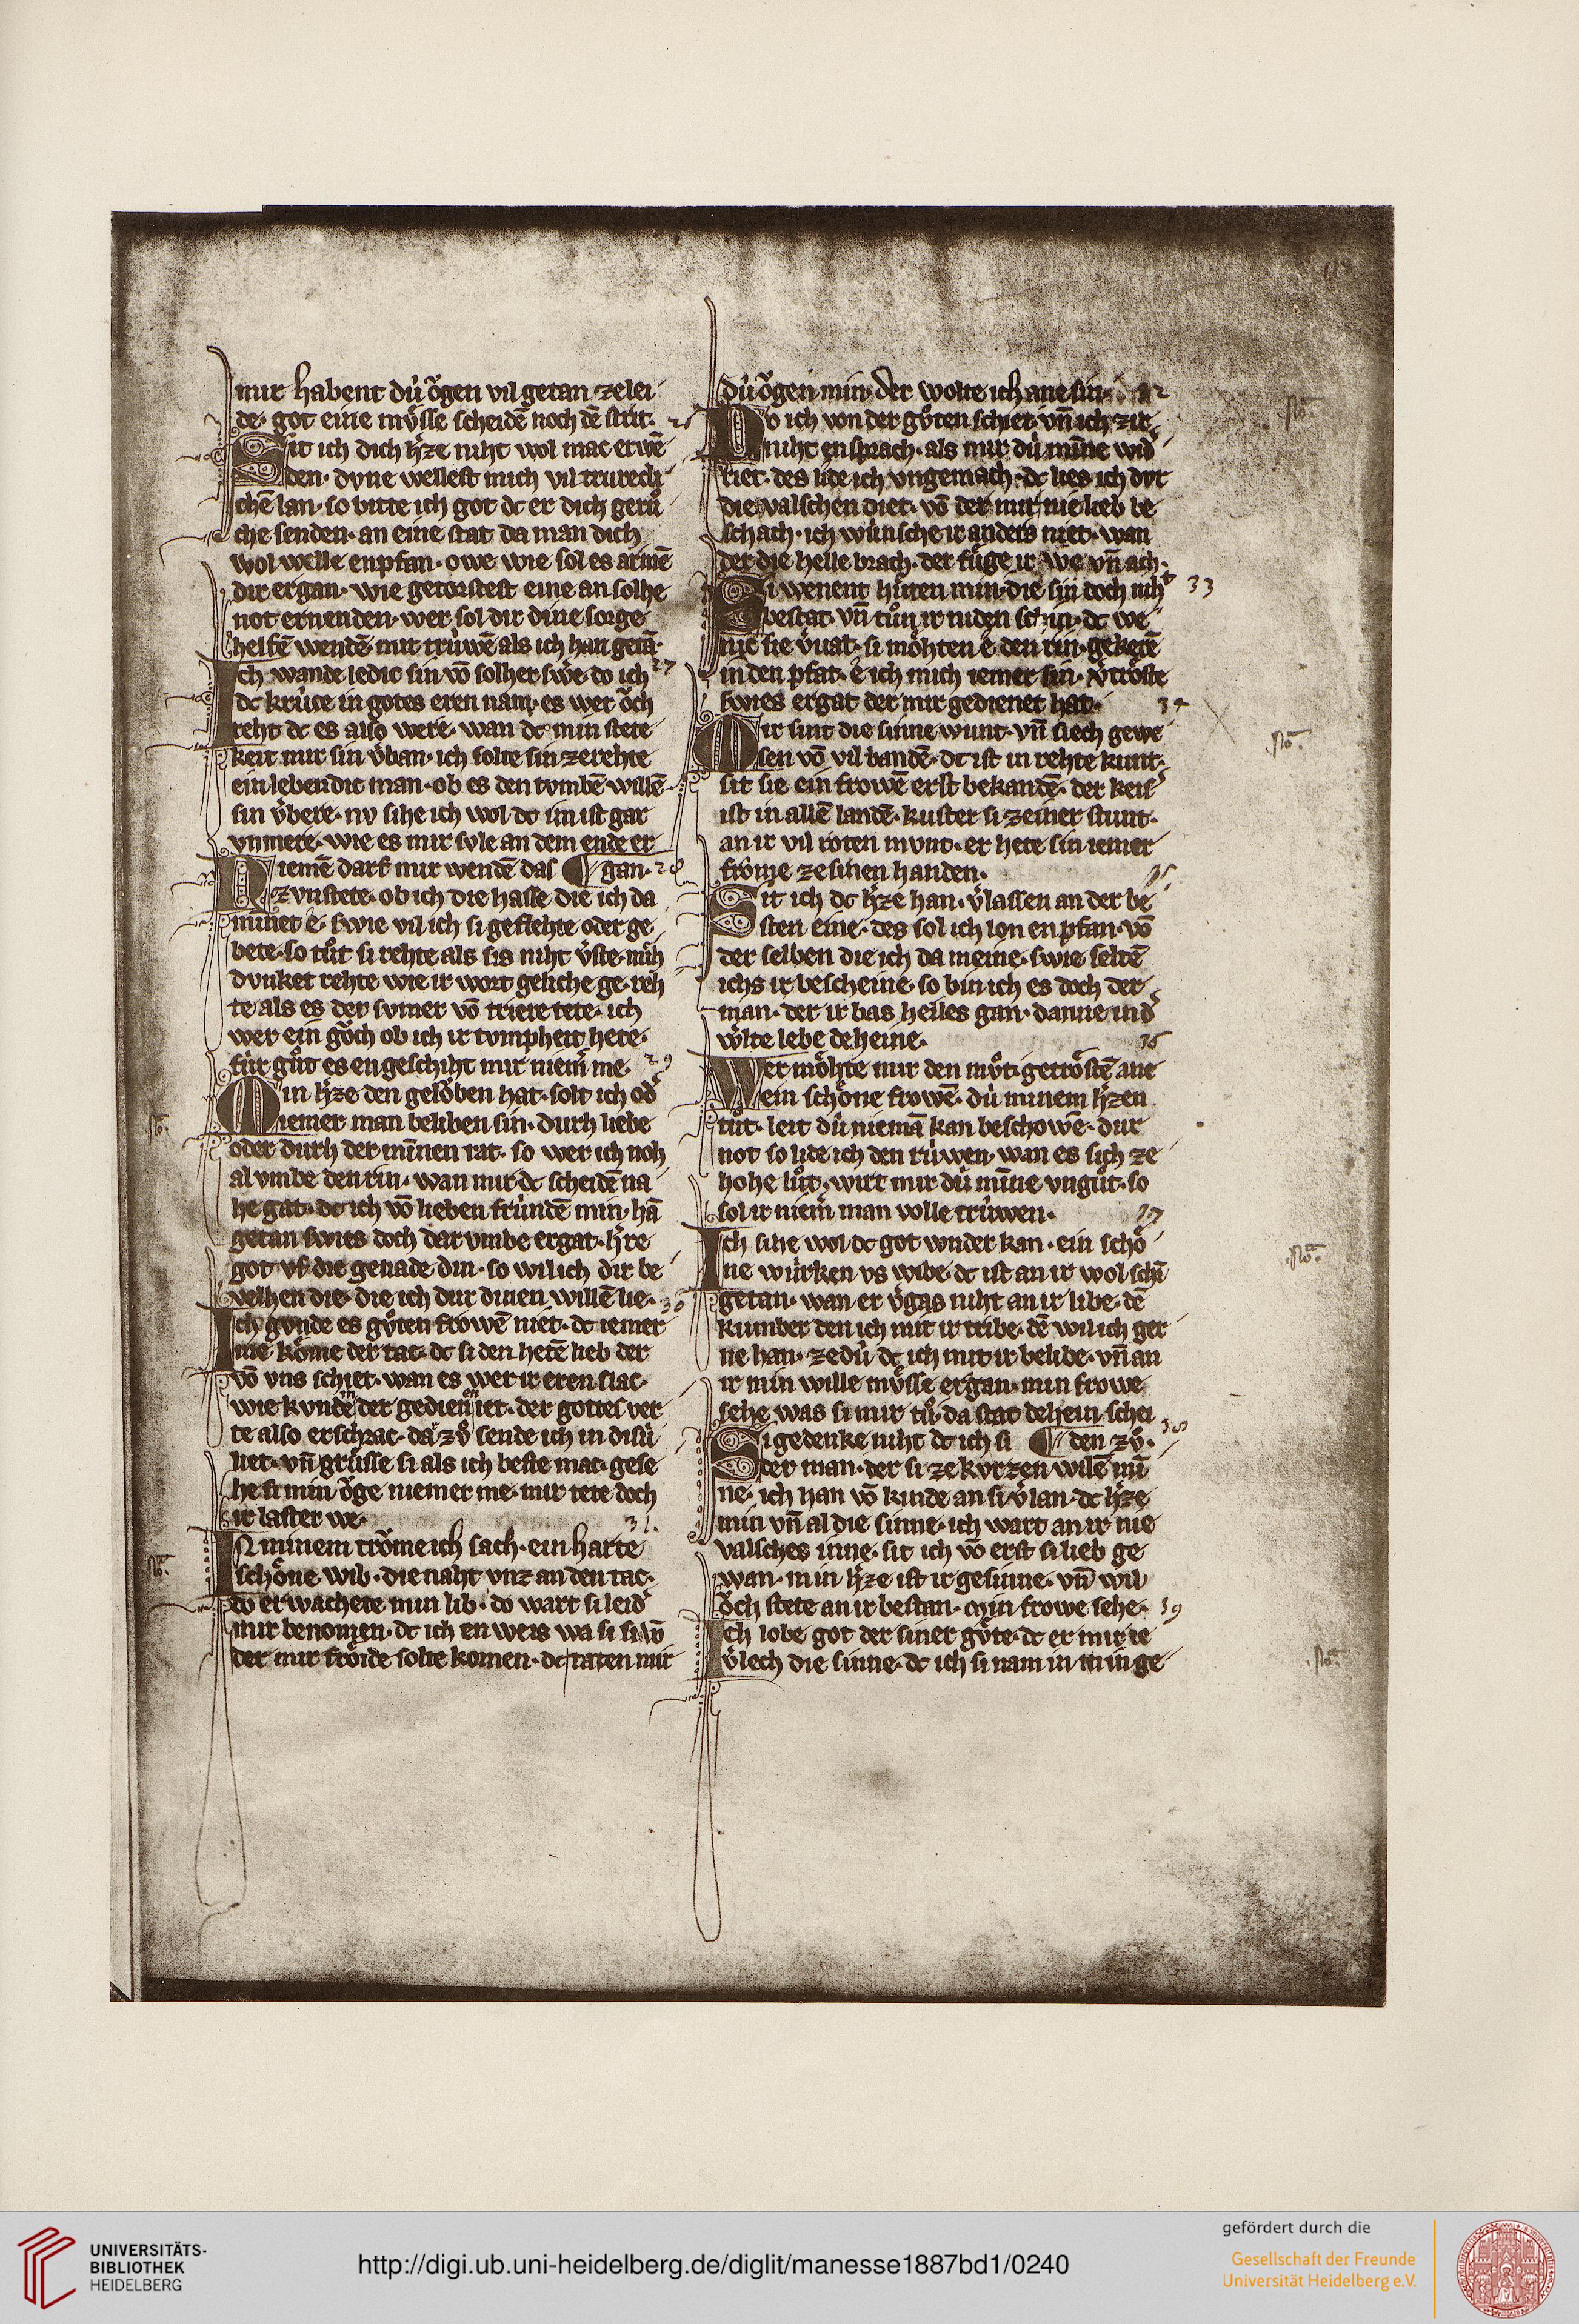 118
mir habent dv̍ oͮgen vil getan zelei
de· got eine mvͤsse scheidē noch dē strit· 26
Sit ich dich hͤze niht wol mac erwē
den· dvne wellest mich vil trurecli
chē lan· so bitte ich got dc er dich gerů
che senden· an eine stat da man dich
wol welle enpfan· owe wie sol es armē
dir ergan· wie getorstest eine an solhe
not ernenden· wer sol dir dine sorge
helfē wendē mit trv̍wē als ich han getā·
Ich wande ledic sin vō solher swe̍· do ich 27
dc krúce in gotes eren nam· es wer oͮch
reht dc es also were· wan dc min stete
keit mir sin v̍ban· ich solte sin zerehte
ein lebendic man· ob es den tvmbē willē
sin v̍bere· nv sihe ich wol dc im ist gar
vnmere· wie es mir svle an dem ende er
Niemē darf mir wendē das ¶ gan· 28
zvnstete· ob ich die hasse die ich da
minnet e· swie vil ich si geflehte oder ge
bete· so tůt si rehte als sis niht v̍ste· mih
dvnket rehte wie ir wort geliche ge· reh
te als es der svmer vō triere tete· ich
wer ein goͮch ob ich ir tvmpheit hete·
für gůt es en geschiht mir niem̍ me· 29
Min hͤze den geloͮben hat· solt ich od̍
iemer man beliben sin· durh liebe
oder durh der minnen rat· so wer ich noh
al vmbe den rin· wan mir dc scheidē na
he gat· dc ich vō lieben frúndē min· hā
getan swies doch dar vmbe ergat· hͤre
got vf die genade din· so wil ich dir be
velhen die· die ich dur dinen willē lie· 30
Ich gvnde es gůten frowē niet· dc iemer
me koͤme der tac· dc si den hetē lieb der
vō vns schiet· wan es wer ir eren slac·
wie kvnde in der gedienen iet· der gottes ver
te also erschrac· da zů sende ich in disú
liet· vn̄ grůsse si als ich beste mac· gese
he si min oͮge niemer me· mir tete doch
ir laster we· 31.
IN minem troͮme ich sach· ein harte
schoͤne wib· die naht vnz an den tac·
do erwachete min lib· do wart si leid̍
mir benomen· dc ich en weis wa si si vō
der mir froͤide solte komen· dc taten mir
dú oͮgen min· der wolte ich ane sin· 32
Do ich von der gůten schiet· vn̄ ich zir
niht en sprach· als mir dú minne wid̍
riet· des lide ich vngemach· dc lies ich dvr
die valschen diet· vō der mir nie lieb be
schach· ich wúnsche ir anders niet· wan
der die helle brach· der fůge ir we vn̄ ach·
Si wenent hůten min· die sin doch niht 33
bestat· vn̄ tůn ir niden schin· dc we
nic sie v̍uat· si moͤhten e den rin· gekerē
in den pfat· e ich mich iemer sin· v̍troͤste
swies ergat der mir gedienet hat· 34
Mir sint die sinne wunt· vn̄ siech gewe
sen vō vil bandē· dc ist in rehte kunt·
sit sie ein frowē erst bekandē· der keis̍
ist in allē landē· kuster si zeiner stunt·
an ir vil roten mvnt· er hete sin iemer
frome ze sinen handen· 35
Sit ich dc hͤze han· v̍lassen an der be
sten eine· des sol ich lon enpfan· vō
der selben die ich da meine· swie seltē
ichs ir bescheine· so bin ich es doch der
man· der ir bas heiles gan· danne in d̍
wͤlte lebe deheine· 36
Wer moͤhte mir den mvͦt· getroͤstē ane
ein schoͤne frowē· dú minem hͤzen
tůt· leit dú niemā kan beschowē· dur
not so lide ich den rúwen· wan es sich ze
hohe lůt· wirt mir dú minne vngůt· so
sol ir niem̍ man volle trúwen· 37
Ich sihe wol dc got wnder kan· ein schoͤ
ne wúrken vs wibe· dc ist an ir wol schī
getan· wan er v̍gas niht an ir libe· dē
kumber den ich mit ir tribe· dē wil ich ger
ne han· zedú dc ich mit ir belibe· vn̄ an
ir min wille mvͤsse ergan· min frowe
sehe was si mir tů· da stat dehein schei
Si gedenke niht dc ich si ¶ den zů· 38
der man· der si ze kvrzen wilē mī
ne· ich han vō kinde an si v̍lan· dc hͤze
min vn̄ al die sinne· ich wart an ir nie
valsches inne· sit ich vō erst si lieb ge
wan· min hͤze ist ir gesinne· vn̄ wil
oͮch stete an ir bestan· min frowe sehe· 39
Ich lobe got der siner gůte· dc er mir ie
v̍lech die sinne· dc ich si nam in min ge
UNIVERSITÄTS-
BIBLIOTHEK
HEIDELBERG
http://digi.ub.uni-heidelberg.de/diglit/manesse1887bd1/0240
gefördert durch die
Gesellschaft der Freunde
Universität Heidelberg e.V.